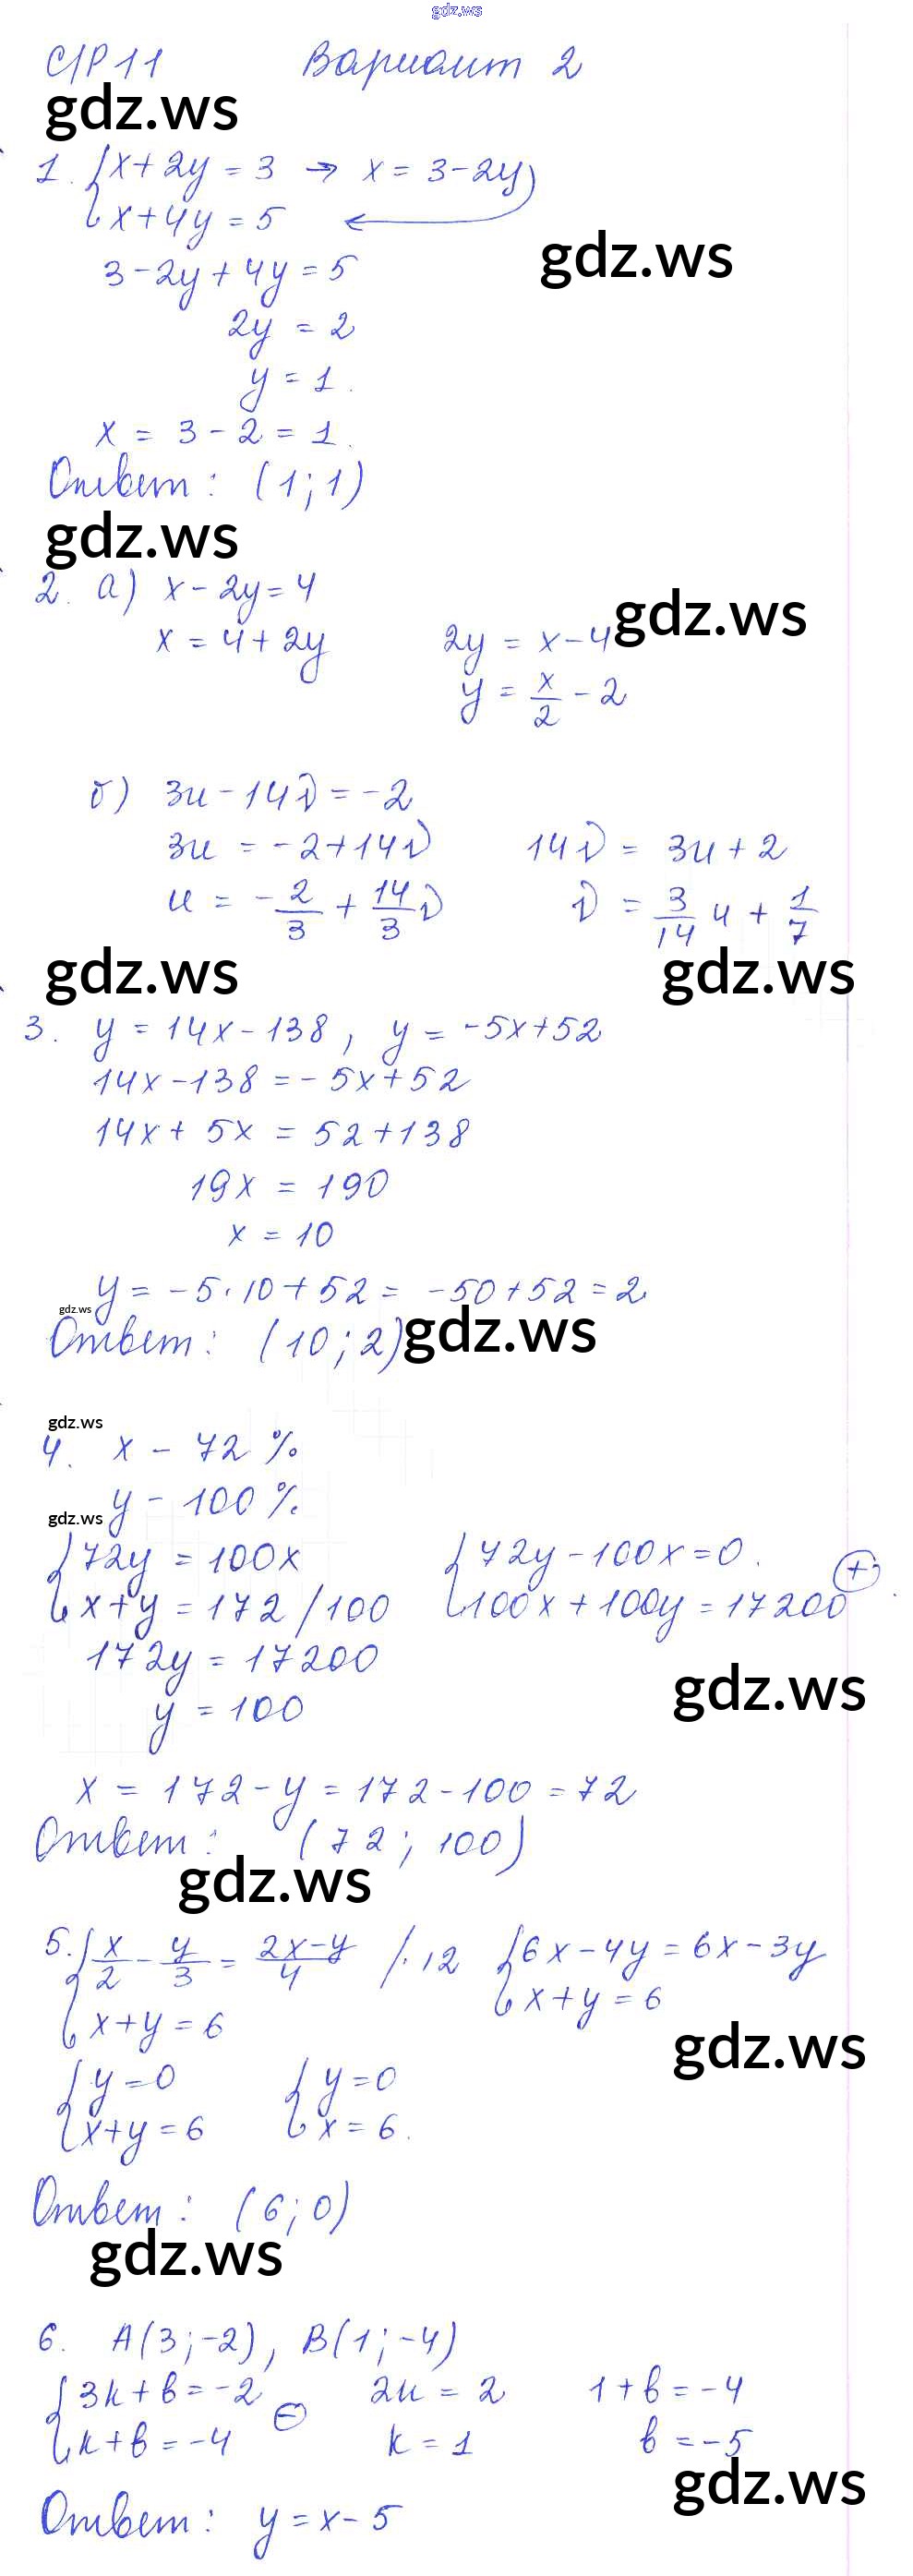 gdz.ws
С/Р 11 Вариант 2
gdz.ws
1. {x + 2y = 3 → x = 3 - 2y
{x + 4y = 5
gdz.ws
3 - 2y + 4y = 5
2y = 2
y = 1.
x = 3 - 2 = 1.
Ответ: (1; 1)
gdz.ws
2. а) x - 2y = 4
gdz.ws
x = 4 + 2y 2y = x - 4
y = x/2 - 2
б) 3u - 14v = -2
3u = -2 + 14v 14v = 3u + 2
u = -2/3 + 14/3 v v = 3/14 u + 1/7
gdz.ws gdz.ws
3. y = 14x - 138, y = -5x + 52
14x - 138 = -5x + 52
14x + 5x = 52 + 138
19x = 190
x = 10
y = -5·10 + 52 = -50 + 52 = 2
gdz.ws
Ответ: (10; 2) gdz.ws
gdz.ws
4. x - 72 %
y - 100 %.
gdz.ws
{72y = 100x {72y - 100x = 0.
{x + y = 172 /100 {100x + 100y = 17200 (+)
172y = 17200
gdz.ws
y = 100
x = 172 - y = 172 - 100 = 72
Ответ: (72; 100)
gdz.ws
5. {x/2 - y/3 = (2x - y)/4 /·12 {6x - 4y = 6x - 3y
{x + y = 6 {x + y = 6
gdz.ws
{y = 0 {y = 0
{x + y = 6 {x = 6.
Ответ: (6; 0)
gdz.ws
6. A(3; -2), B(1; -4)
{3k + b = -2 (-) 2k = 2 1 + b = -4
{k + b = -4 k = 1 b = -5
gdz.ws
Ответ: y = x - 5